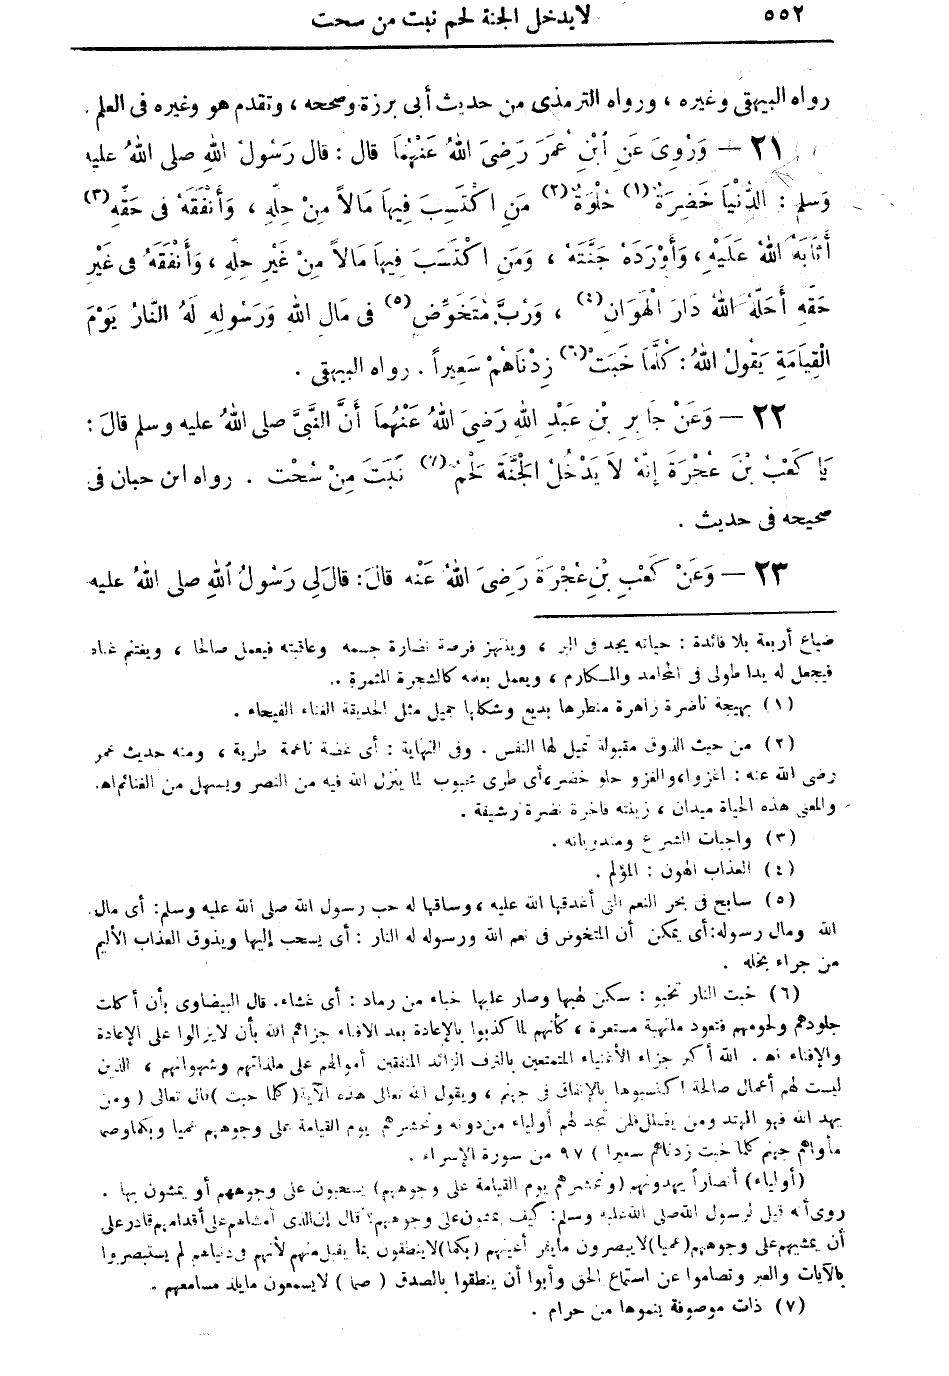 ٥٥٢ لا يدخل الجنة لحم نبت من سحت
رواه البيهقى وغيره ، ورواه الترمذى من حديث أبى برزة وصححه ، وتقدم هو وغيره فى العلم .
٢١ — وَرُوِىَ عَنِ ابْنِ عُمَرَ رَضِىَ اللهُ عَنْهُمَا قال : قال رَسُولُ اللهِ صلى اللهُ عليه
وَسلم : الدُّنْيَا خَضِرَةٌ (١) حُلْوَةٌ (٢) مَنِ اكْتَسَبَ فِيهَا مَالاً مِنْ حِلِّهِ ، وَأَنْفَقَهُ فى حَقِّهِ (٣)
أَثَابَهُ اللهُ عَلَيْهِ ، وَأَوْرَدَهُ جَنَّتَهُ ، وَمَنِ اكْتَسَبَ فِيهَا مَالاً مِنْ غَيْرِ حِلِّهِ ، وَأَنْفَقَهُ فى غَيْرِ
حَقِّهِ أَحَلَّهُ اللهُ دَارَ الْهَوَانِ (٤) ، وَرُبَّ مُتَخَوِّضٍ (٥) فى مَالِ اللهِ وَرَسُولِهِ لَهُ النَّارُ يَوْمَ
الْقِيَامَةِ يَقُولُ اللهُ : كُلَّمَا خَبَتْ (٦) زِدْنَاهُمْ سَعِيراً . رواه البيهقى .
٢٢ — وَعَنْ جَابِرِ بْنِ عَبْدِ اللهِ رَضِىَ اللهُ عَنْهُمَا أَنَّ النَّبِىَّ صلى اللهُ عليه وسلم قالَ :
يَا كَعْبُ بْنَ عُجْرَةَ إِنَّهُ لاَ يَدْخُلُ الْجَنَّةَ لَحْمٌ (٧) نَبَتَ مِنْ سُحْت . رواه ابن حبان فى
صحيحه فى حديث .
٢٣ — وَعَنْ كَعْبِ بْنِ عُجْرَةَ رَضِىَ اللهُ عَنْه قالَ : قالَ لِى رَسُولُ اللهِ صلى اللهُ عليه
ضياع أربعة بلا فائدة : حياته يجد فى البر ، وينتهز فرصة نضارة جسمه وعاقبته فيعمل صالحا ، ويغتنم غناه
فيجعل له يدا طولى فى المحامد والمكارم ، ويعمل بعلمه كالشجرة المثمرة .
(١) بهيجة ناضرة زاهرة منظرها بديع وشكلها جميل مثل الحديقة الغناء الفيحاء .
(٢) من حيث الذوق مقبولة تميل لها النفس . وفى النهاية : أى غضة ناعمة طرية ، ومنه حديث عمر
رضى الله عنه : اغزوا ، والغزو حلو خضر ، أى طرى محبوب لما ينزل الله فيه من النصر ويسهل من الغنائم اه
والمعنى هذه الحياة ميدان ، زينته فاخرة نضرة رشيقة .
(٣) واجبات الشرع ومندوباته .
(٤) العذاب الهون : المؤلم .
(٥) سابح فى بحر النعم التى أغدقها الله عليه ، وساقها له حب رسول الله صلى الله عليه وسلم : أى مال
الله ومال رسوله : أى يمكن أن المتخوض فى نعم الله ورسوله له النار : أى يسحب إليها ويذوق العذاب الأليم
من جراء بخله .
(٦) خبت النار تخبو : سكن لهبها وصار عليها خباء من رماد : أى غشاء . قال البيضاوى بأن أكلت
جلودهم ولحومهم فتعود ملتهبة مستعرة ، كأنهم لما كذبوا بالإعادة بعد الافناء جزاهم الله بأن لايزالوا على الإعادة
والإفناء اه . الله أكبر جزاء الأغنياء المتمتعين بالترف الزائد المنفقين أموالهم على ملذاتهم وشهواتهم ، الذين
ليست لهم أعمال صالحة اكتسبوها بالإنفاق فى جهنم ، ويقول الله تعالى هذه الآية ( كلما خبت ) قال تعالى ( ومن
يهد الله فهو المهتد ومن يضلل فلن تجد لهم أولياء من دونه ونحشرهم يوم القيامة على وجوههم عميا وبكما وصما
مأواهم جهنم كلما خبت زدناهم سعيرا ) ٩٧ من سورة الإسراء .
(أولياء) أنصاراً يهدونهم (ونحشرهم يوم القيامة على وجوههم) يسحبون على وجوههم أو يمشون بها .
روى أنه قيل لرسول الله صلى الله عليه وسلم : كيف يمشون على وجوههم؟ قال إن الذى أمشاهم على أقدامهم قادر على
أن يمشيهم على وجوههم (عميا) لايبصرون مايقر أعينهم (بكما) لاينطقون بما يقبل منهم لأنهم فى دنياهم لم يستبصروا
بالآيات والعبر وتصاموا عن استماع الحق وأبوا أن ينطقوا بالصدق ( صما ) لا يسمعون مايلذ مسامعهم .
(٧) ذات موصوفة ينموها من حرام .